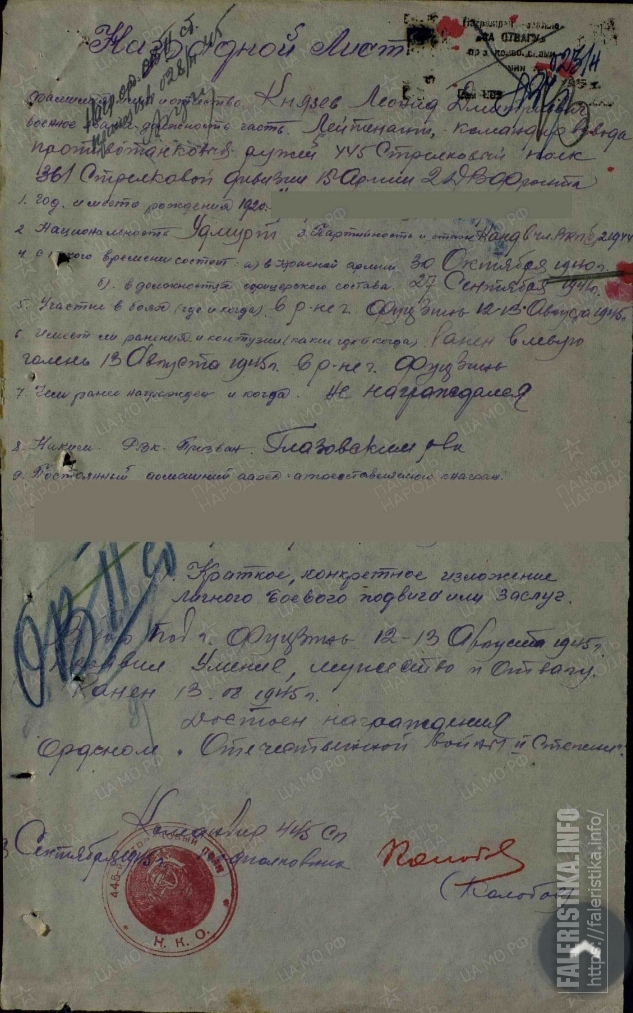 Наградной Лист
"ЗА ОТВАГУ"
025/н
Нагр. ор. От. В. II ст.
028/н 45
Фамилия имя и отчество Князев Леонид
военное звание должность часть. Лейтенант, командир взвода
противотанковых ружей 445 Стрелковый полк
361 Стрелковой дивизии 15 Армии 2 ДВ Фронта
1. Год. и место рождения 1920г.
2 Национальность Удмурт 3. Партийность и стаж Канд в чл. ВКПб 2.1944
4. С какого времени состоит а) в Красной армии 30 Октября 1940 г.
б). в должности офицерского состава. 27 Сентября
5. Участие в боях (где и когда). в р-не г. Фуцзинь 12-13 Августа 1945г.
6 Имеет ли ранения и контузии (какие где и когда) Ранен в левую
голень 13 Августа 1945г. в р-не г. Фуцзинь
7. Чем ранее награжден и когда. не награждался
8. Каким РВК. Призван. Глазовским рвк
9. Постоянный домашний адрес представляемого к наград.
ОВ II ст
Краткое, конкретное изложение
личного боевого подвига или заслуг.
под г. Фуцзинь 12-13 Августа 1945г.
проявил Умение, мужество и Отвагу.
Ранен 13.08 1945г.
Достоен награждения
Орденом "Отечественной войны II Степени".
Командир 445 Сп
Сентября 1945г. подполковник
Н.К.О.
ПАМЯТЬ НАРОДА
ЦАМО.РФ
FALERISTIKA.INFO
https://faleristika.info/